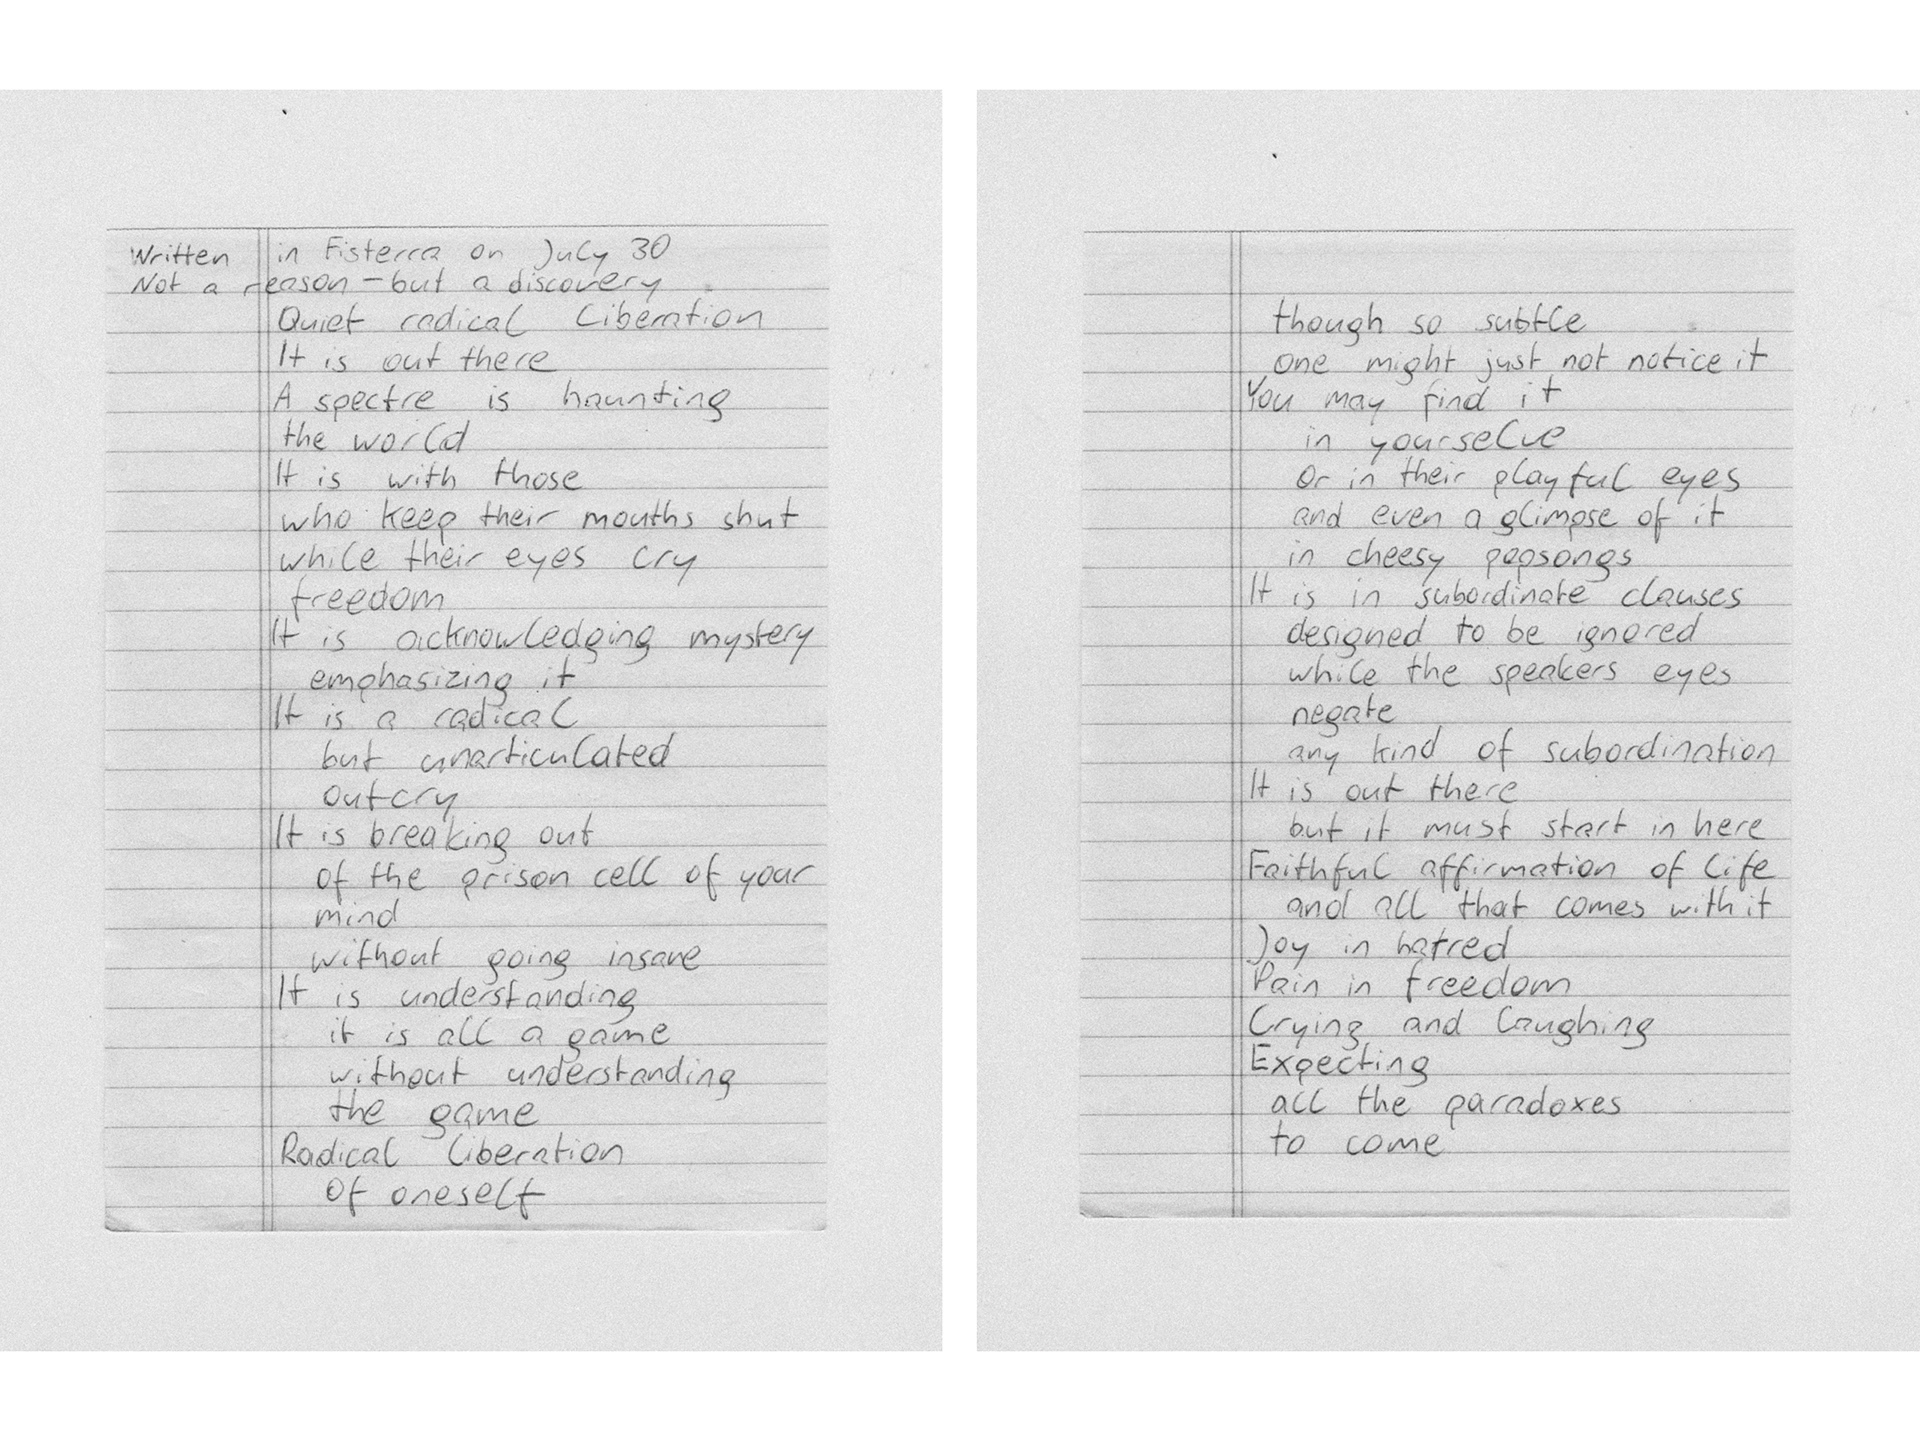 Written in Fisterra on July 30
Not a reason – but a discovery
Quiet radical liberation
It is out there
A spectre is haunting
the world
It is with those
who keep their mouths shut
while their eyes cry
freedom
It is acknowledging mystery
emphasizing it
It is a radical
but unarticulated
outcry
It is breaking out
of the prison cell of your
mind
without going insane
It is understanding
it is all a game
without understanding
the game
Radical liberation
Of oneself
though so subtle
one might just not notice it
You may find it
in yourselve
Or in their playful eyes
and even a glimpse of it
in cheesy popsongs
It is in subordinate clauses
designed to be ignored
while the speakers eyes
negate
any kind of subordination
It is out there
but it must start in here
Faithful affirmation of life
and all that comes with it
Joy in hatred
Pain in freedom
Crying and laughing
Expecting
all the paradoxes
to come